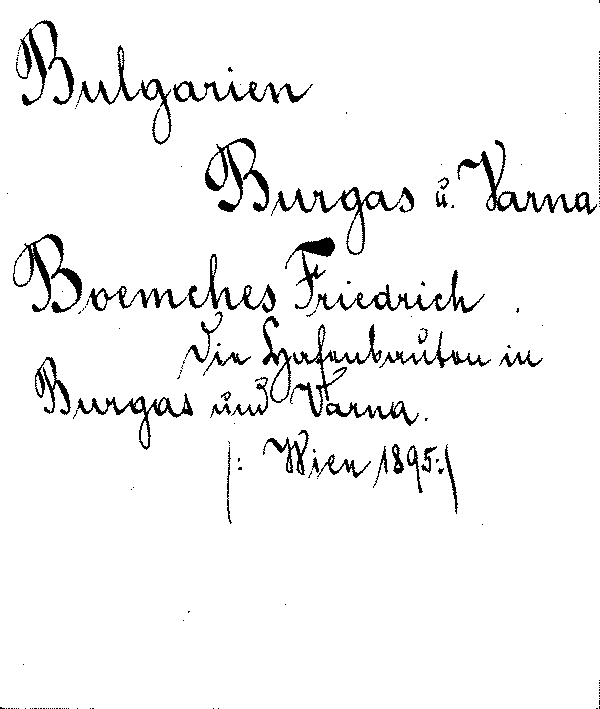 Bulgarien
Burgas u. Varna
Boemches Friedrich
Die Hafenbauten in
Burgas und Varna.
|: Wien 1895:|